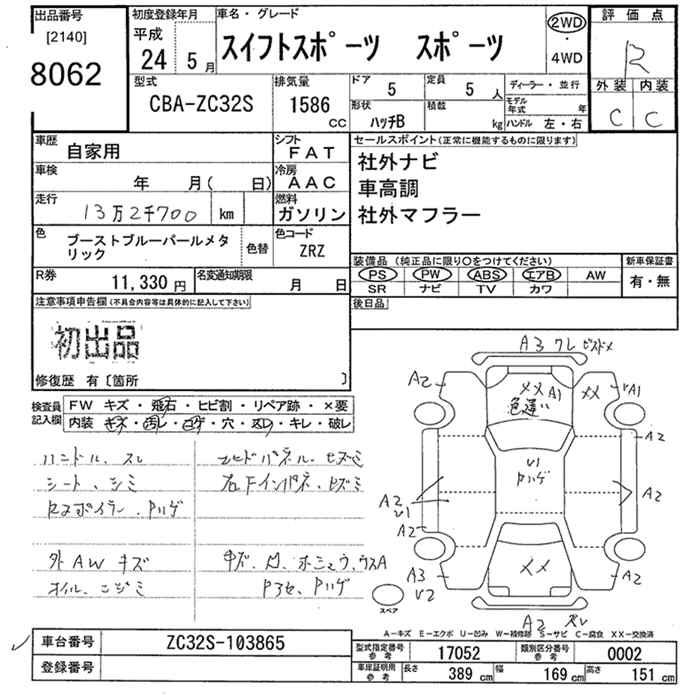 出品番号
[2140]
8062
初度登録年月
平成
24 年 5 月
車名・グレード
スイフトスポーツ スポーツ
2WD
・
4WD
評価点
R
外装 内装
C C
型式
CBA-ZC32S
排気量
1586
CC
ドア
5
定員
5 人
形状
ハッチB
積載
kg
ディーラー・並行
モデル年式 年
ハンドル 左・右
車歴
自家用
シフト
FAT
車検
年 月( 日)
冷房
AAC
走行
13万2千700 km
燃料
ガソリン
色
ブーストブルーパールメタリック
色替
色コード
ZRZ
R券
11,330 円
名変通知期限
月 日
セールスポイント(正常に機能するものに限ります)
社外ナビ
車高調
社外マフラー
装備品(純正品に限り○をつけてください)
PS PW ABS エアB AW
SR ナビ TV カワ
新車保証書
有・無
後日品
注意事項申告欄(不具合内容等は具体的に記入して下さい)
初出品
修復歴 有〔箇所 〕
検査員
記入欄
FW キズ・飛石・ヒビ割・リペア跡・×要
内装 キズ・汚レ・コゲ・穴・スレ・キレ・破レ
ハンドル、スレ
シート、シミ
Rスポイラー、Pハゲ
コアサポパネル、ヒズミ
右Fインパネ、ヒズミ
外AWキズ
オイル、ニジミ
Pアセ、Pハゲ
A3 ワレ ビスドメ
A2
XX A1
色違い
XX
A1
A2
U1
Pハゲ
A2
U1
A2
A2
A3
U2
XX
A2
A2 ズレ
スペア
A-キズ E-エクボ U-凹み W-補修跡 S-サビ C-腐食 XX-交換済
車台番号
ZC32S-103865
登録番号
型式指定番号
参考
17052
類別区分番号
参考
0002
車庫証明用
参考
長さ 389 cm 幅 169 cm 高さ 151 cm